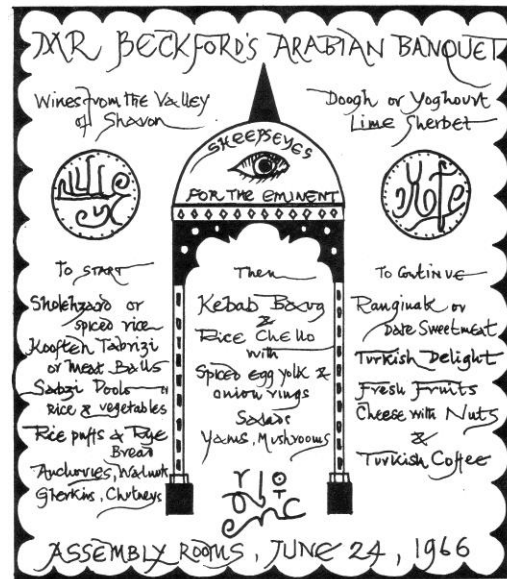 MR BECKFORD'S ARABIAN BANQUET
Wines from the Valley
of Sharon
Doogh or Yoghourt
Lime Sherbet
SHEEPSEYES
FOR THE EMINENT
To START
Sholehzard or
spiced rice
Koofteh Tabrizi
or Meat Balls
Sabzi Poolo or
Rice & vegetables
Rice puffs & Rye
Bread
Anchovies, Walnuts
Gherkins, Chutneys
Then
Kebab Barg
&
Rice Chello
with
Spiced egg yolk &
onion rings
Salads
Yams, Mushrooms
To Continue
Ranginak or
Date Sweetmeat
Turkish Delight
Fresh Fruits
Cheese with Nuts
&
Turkish Coffee
ASSEMBLY ROOMS, JUNE 24, 1966